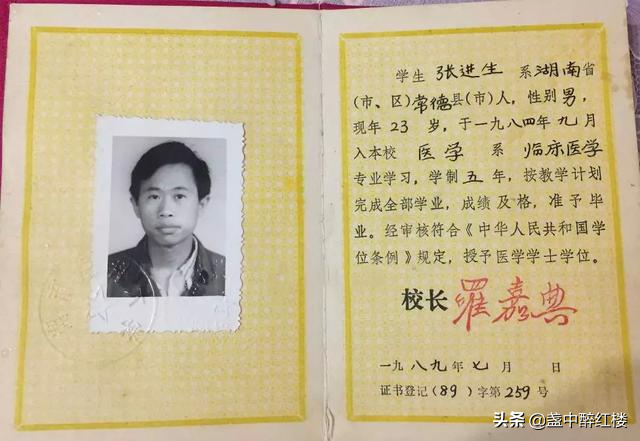 学生 张进生 系湖南省
(市、区)常德县(市)人，性别男，
现年 23 岁，于一九八四年九月
入本校 医学 系 临床医学
专业学习，学制五年，按教学计划
完成全部学业，成绩及格，准予毕
业。经审核符合《中华人民共和国学
位条例》规定，授予医学学士学位。
校长 罗嘉典
一九八九年七月 日
证书登记(89)字第259号
头条 @盏中醉红楼